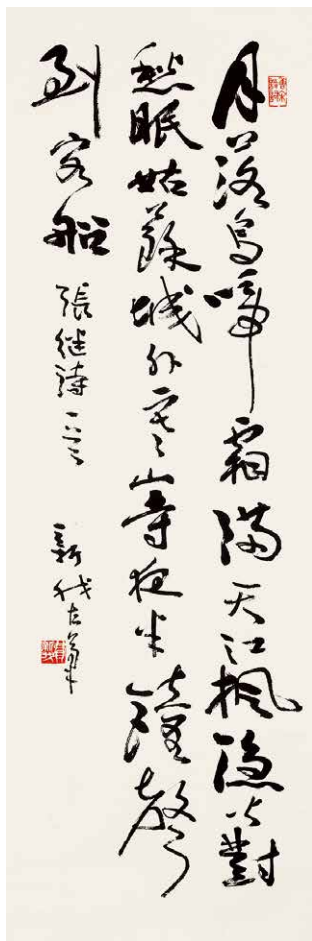 月落烏啼霜滿天江楓漁火對
愁眠姑蘇城外寒山寺夜半鐘聲
到客船
張继詩一首
新我左筆